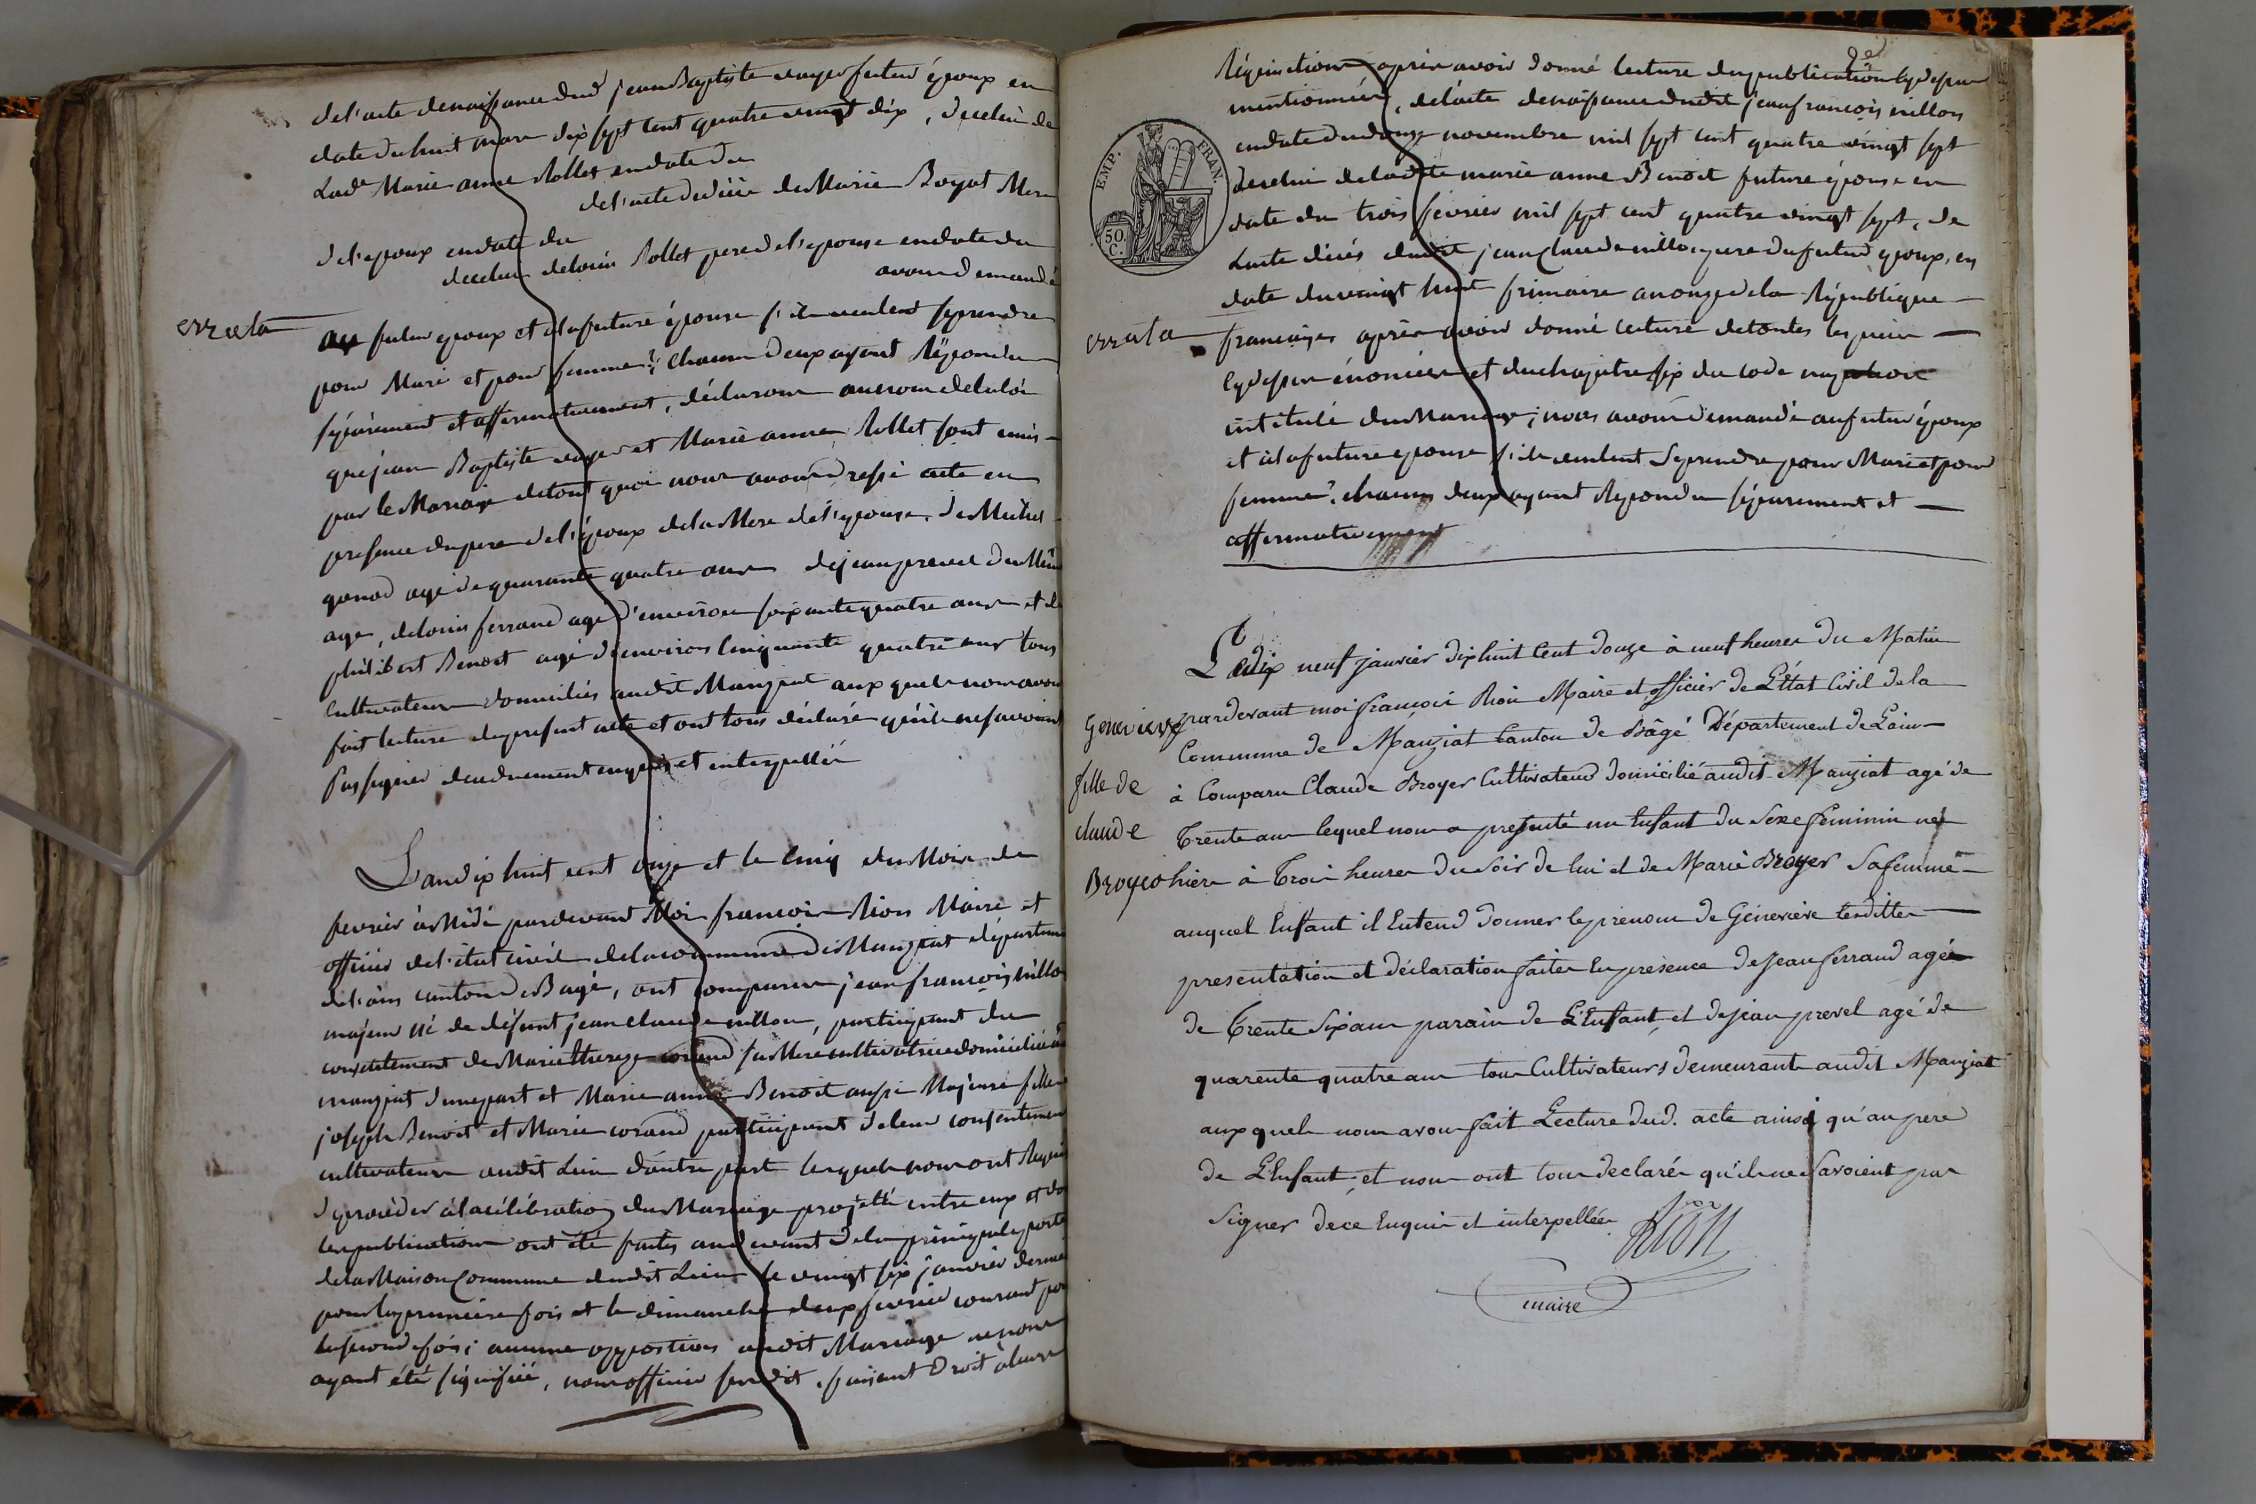 de l'acte de naissance dud jean Baptiste voyer futur époux en
date du huit mars dix sept cent quatre vingt dix, de celui de
Lad.e Marie anne Rollet en date du
de l'acte de décès de Marie Boyat Mere
de l'epoux en date du
de celui de louis Rollet pere de l'epouse en date du
avons demandé
errata
au futur epoux et a la future épouse s'ils veulent se prendre
pour Mari et pour femme? chacun d'eux ayant répondu
séparement et affirmativement, déclarons au nom de la loi
que jean Baptiste voyer et Marie anne Rollet sont unis
par le Mariage de tout quoi nous avons dressé acte en
presence du pere de l'époux de la Mere de l'epouse, de Michel
gonod agé de quarante quatre ans de jean prevel du Même
age, de louis ferrand agé d'environ soixante quatre ans et de
philibert Benoit agé d'environ cinquante quatre ans tous
cultivateurs domiciliés audit Manziat aux quels nous avons
fait lecture du present acte et ont tous déclaré qu'ils ne savoient
pas signer de ce dument enquis et interpellés
L'an dix huit cent onze et le cinq du Mois de
fevrier à Midi pardevant Moi françois Rion Maire et
officier de l'état civil de la commune de Manziat département
de l'ain canton de Bagé, ont comparus jean françois millon
majeur né de défunt jean claude millon, partiquant du
consentement de Marie therese corand sa Mere cultivatrice domiciliée à
manziat d'une part et Marie anne Benoit aussi Majeure fille de
joseph Benoit et Marie corand de leur consentement
cultivateurs audit Lieu d'autre part lesquels nous ont requis
de proceder à la célébration du Mariage projetté entre eux et dont
les publications ont été faites au devant de la principale porte
de la Maison Commune dudit Lieu le vingt six janvier dernier
pour la premiere fois et le dimanche deux fevrier courant pour
la seconde fois; aucune opposition audit Mariage ne nous
ayant été signifiée, nous officier susdit, faisant Droit à leur
2e
EMP. FRAN.
50. C.
réquisition après avoir donné lecture des publications cy dessus
mentionnées, de l'acte de naissance dudit jean françois millon
en date du douze novembre mil sept cent quatre vingt sept
de celui de ladite marie anne Benoit future épouse en
date du trois fevrier mil sept cent quatre vingt sept, de
L'acte décés dudit jean claude millon pere du futur epoux, en
date du vingt huit frimaire an onze de la République
errata
française après avoir donné lecture de toutes les pieces
cy dessus énoncées et du chapitre six du code
intitulé du Mariage; nous avons demandé au futur époux
et à la future epouse s'ils veulent se prendre pour Mari et pour
femme? chacun d'eux ayant repondu séparement et
affirmativement
Le dix neuf janvier dix huit Cent douze à neuf heures du Matin
pardevant moi françois Rion Maire et officier de L'état Civil de la
Commune de Manziat Canton de Bâgé Département de L'ain
Genevieve
fille de
claude
Broyer
à Comparu Claude Broyer Cultivateur domicilié audit Manziat agé de
Trente ans lequel nous a presenté un Enfant du Sexe féminin né
hier à Trois heures du Soir de lui et de Marie Broyer Sa femme
auquel Enfant il Entend donner le prenom de Géneviève lesdittes
presentation et déclaration faites En présence de Jean ferrand agé
de Trente Six ans parain de L'Enfant et de jean prevel agé de
quarente quatre ans tous Cultivateurs demeurants audit Manziat
aux quels nous avons fait Lecture dud. acte ainsi qu'au pere
de L'Enfant, et nous ont tous declarés qu'ils ne Savoient pas
Signer de ce Enquis et interpellés. Rion
maire